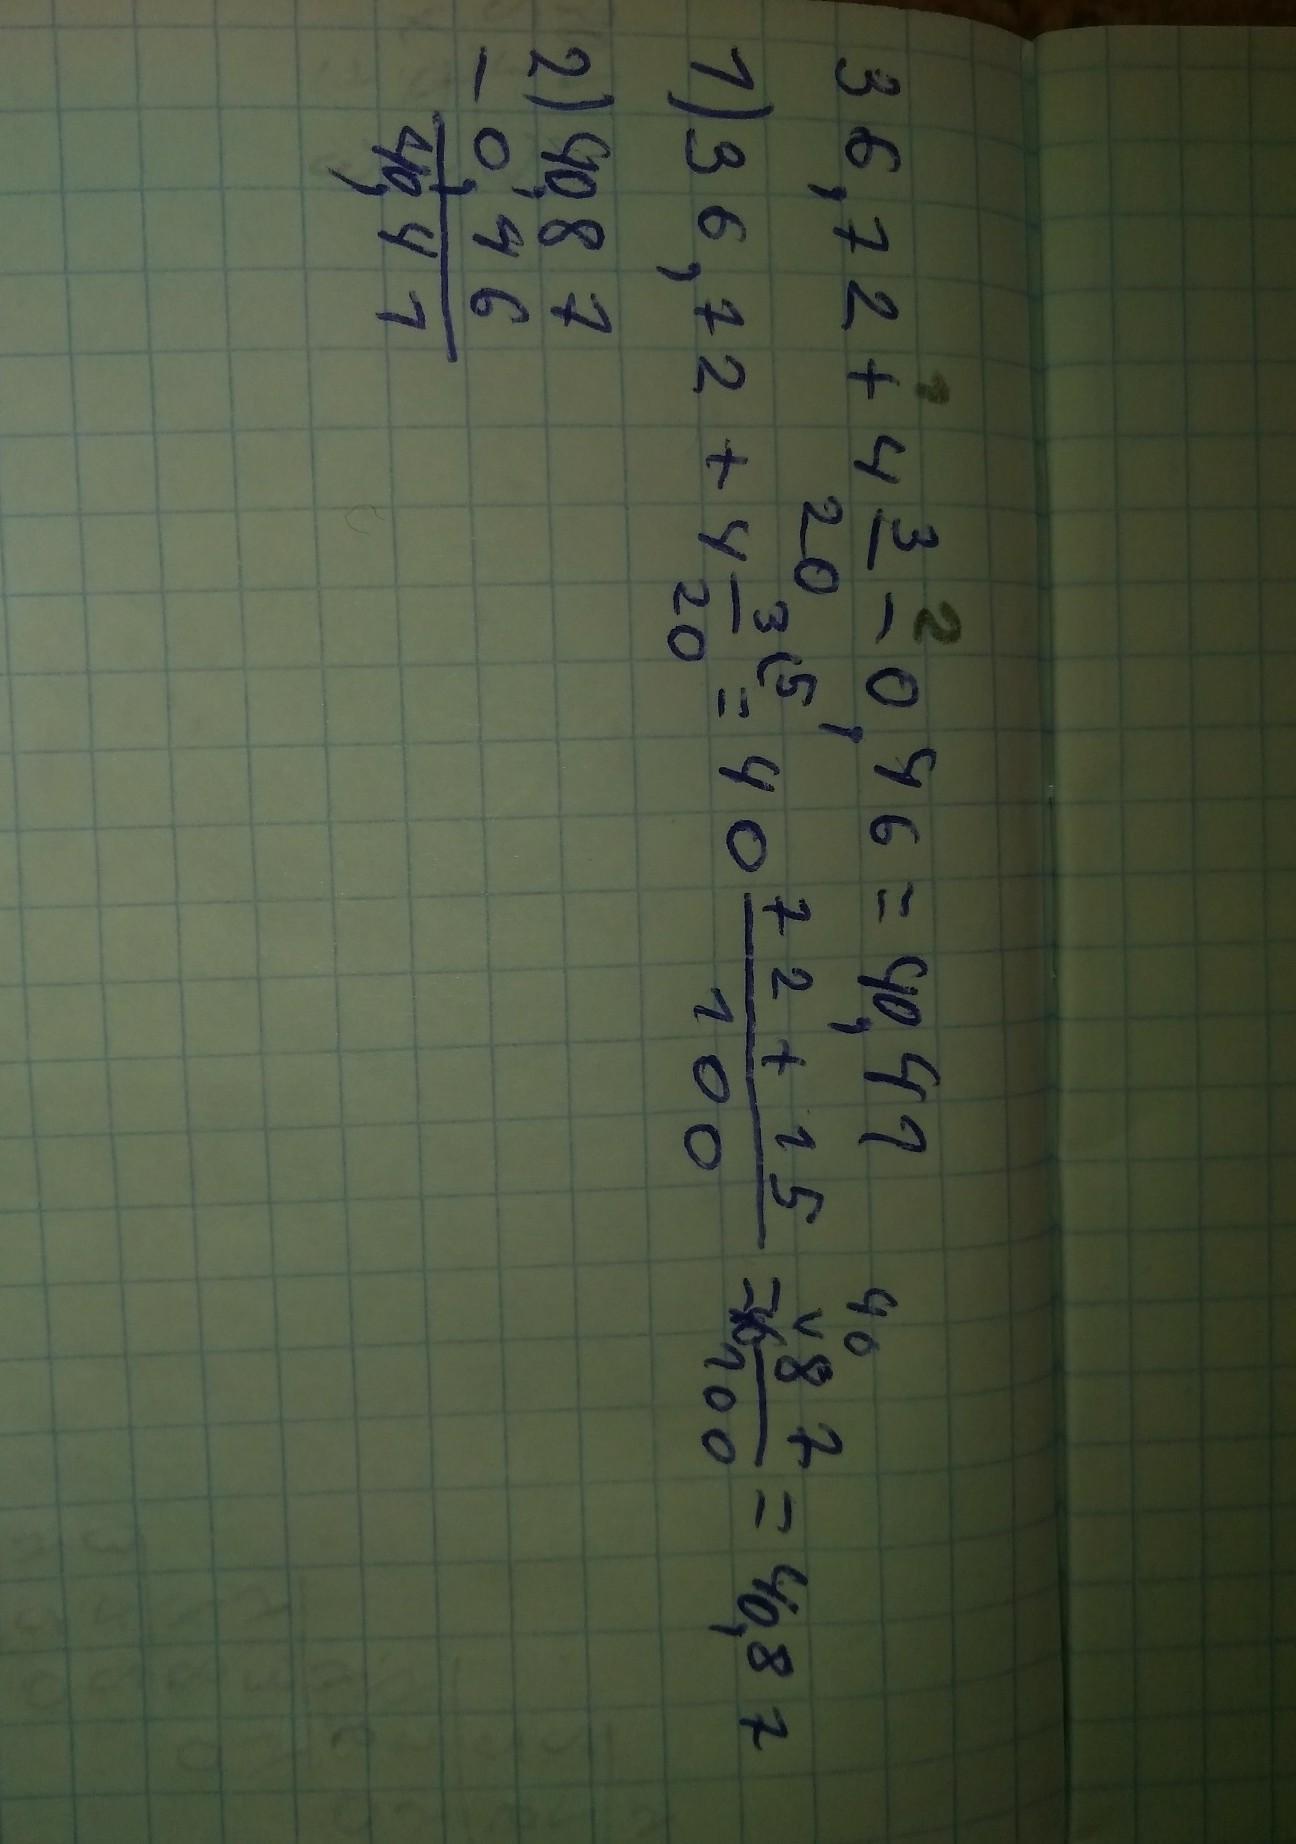 36,72 + 4 3/20 - 0,46 = 40,41
1) 36,72 + 4 3(5/20 = 40 72 + 15/100 = 40 87/100 = 40,87
2) 40,87
- 0,46
40,41